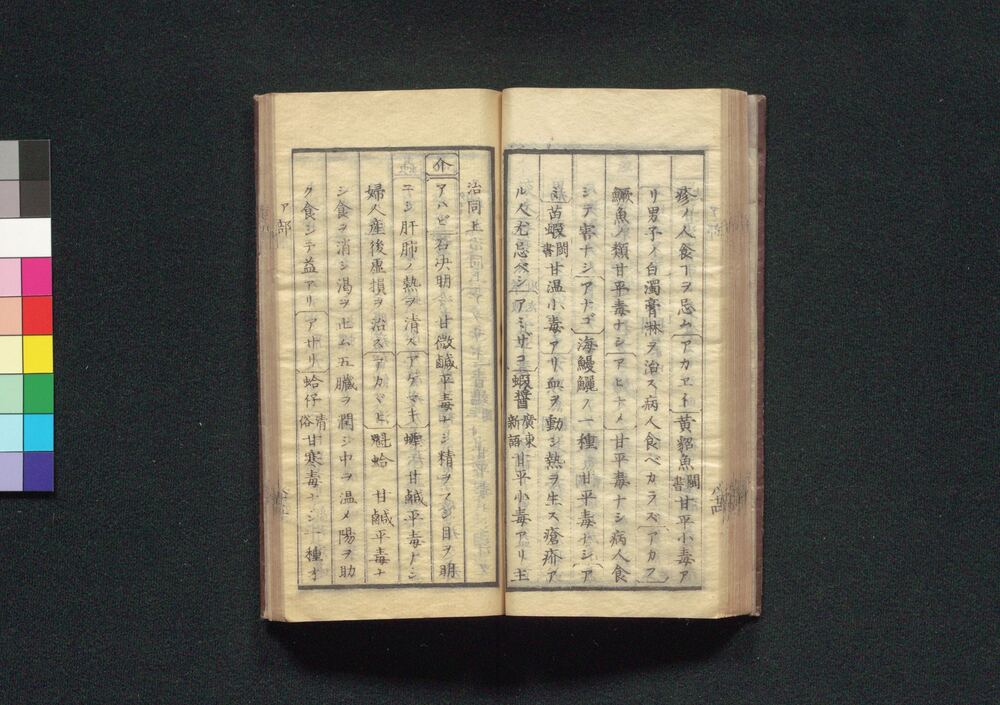 疹ノ人食フヲ忌ム アカヱイ 黄貂魚 閩書 甘平小毒ア
リ男子ノ白濁膏淋ヲ治ス病人食ベカラズ アカフ
鱖魚ノ類甘平毒ナシ アヒナメ 甘平毒ナシ病人食
シテ害ナシ アナゴ 海鰻鱺ノ一種甘平毒ナシ ア
ミ 苗蝦 閩書 甘温小毒アリ血ヲ動シ熱ヲ生ス瘡疥ア
ル人尤忌ベシ アミザコ 蝦醬 廣東新語 甘平小毒アリ主
治同上
介 アハビ 石决明 甘微鹹平毒ナシ精ヲマシ目ヲ明
ニシ肝肺ノ熱ヲ清ス アゲマキ 蟶 甘鹹平毒ナシ
婦人産後虚損ヲ治ス アカヾヒ 魁蛤 甘鹹平毒ナ
シ食ヲ消シ渇ヲ止ム五臓ヲ潤シ中ヲ温メ陽ヲ助
ク食シテ益アリ アサリ 蛤仔 清俗 甘寒毒ナシ一種オ
ア部